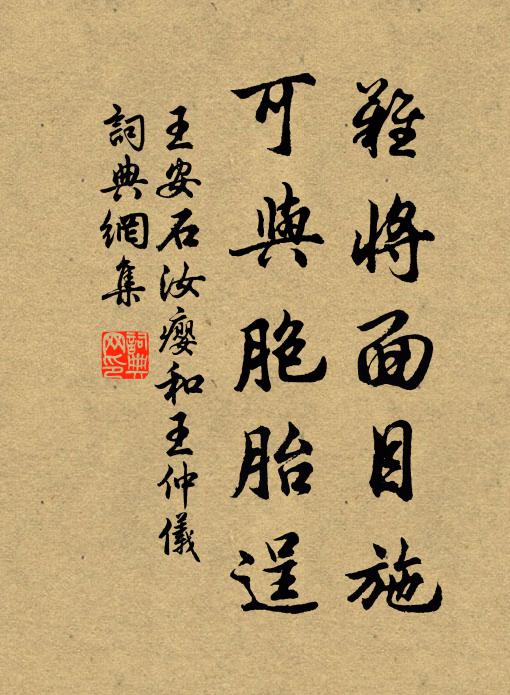 難將面目施
可與胞胎逞
王安石汝癭和王仲儀
詞典網集
詞典網印